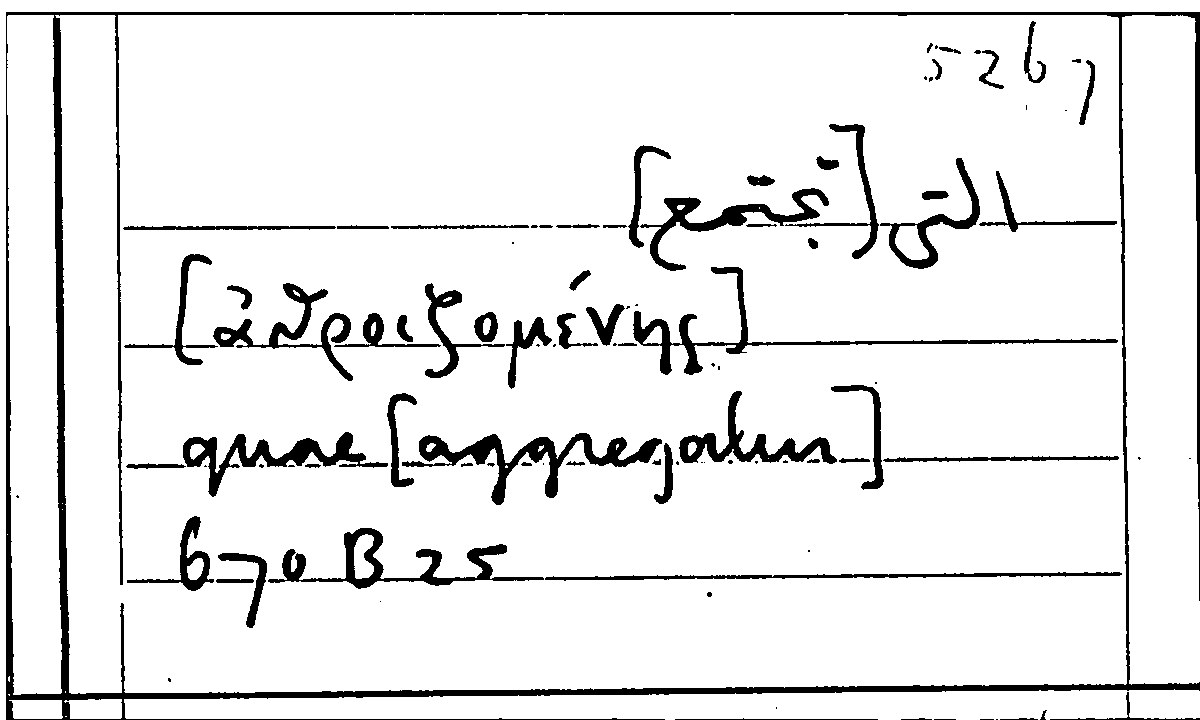 5267
التى [تجتمع]
[ἀθροιζομένης]
quae [aggregatur]
670 B 25